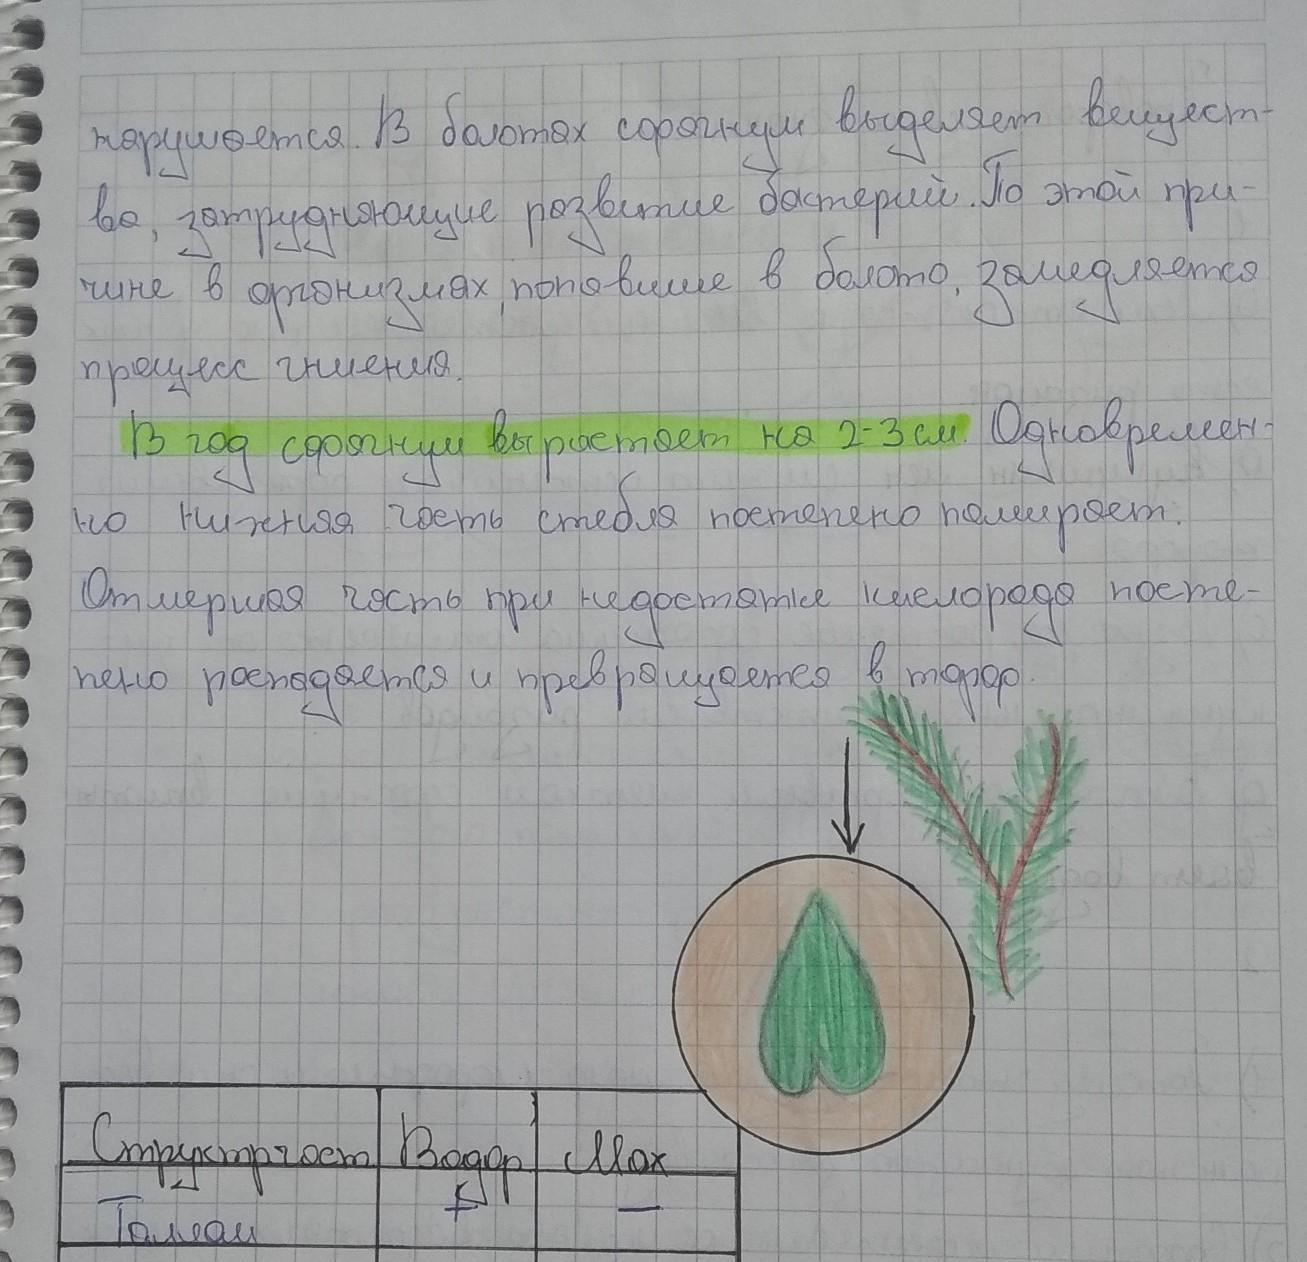 нарушается. В болотах сфрагнум выделяет вещест-
ва, затрудняющие развитие бактерий. По этой при-
чине в организмах, попавшие в болото, замедляется
процесс гниения.
В год сфрагнум вырастает на 2-3 см. Одновремен-
но нижняя часть стебля постепено помирает.
Отмершая часть при недостатке кислорода посте-
пено распадается и превращуается в торф.
Структрчаст Водор Мох
Таллом + —